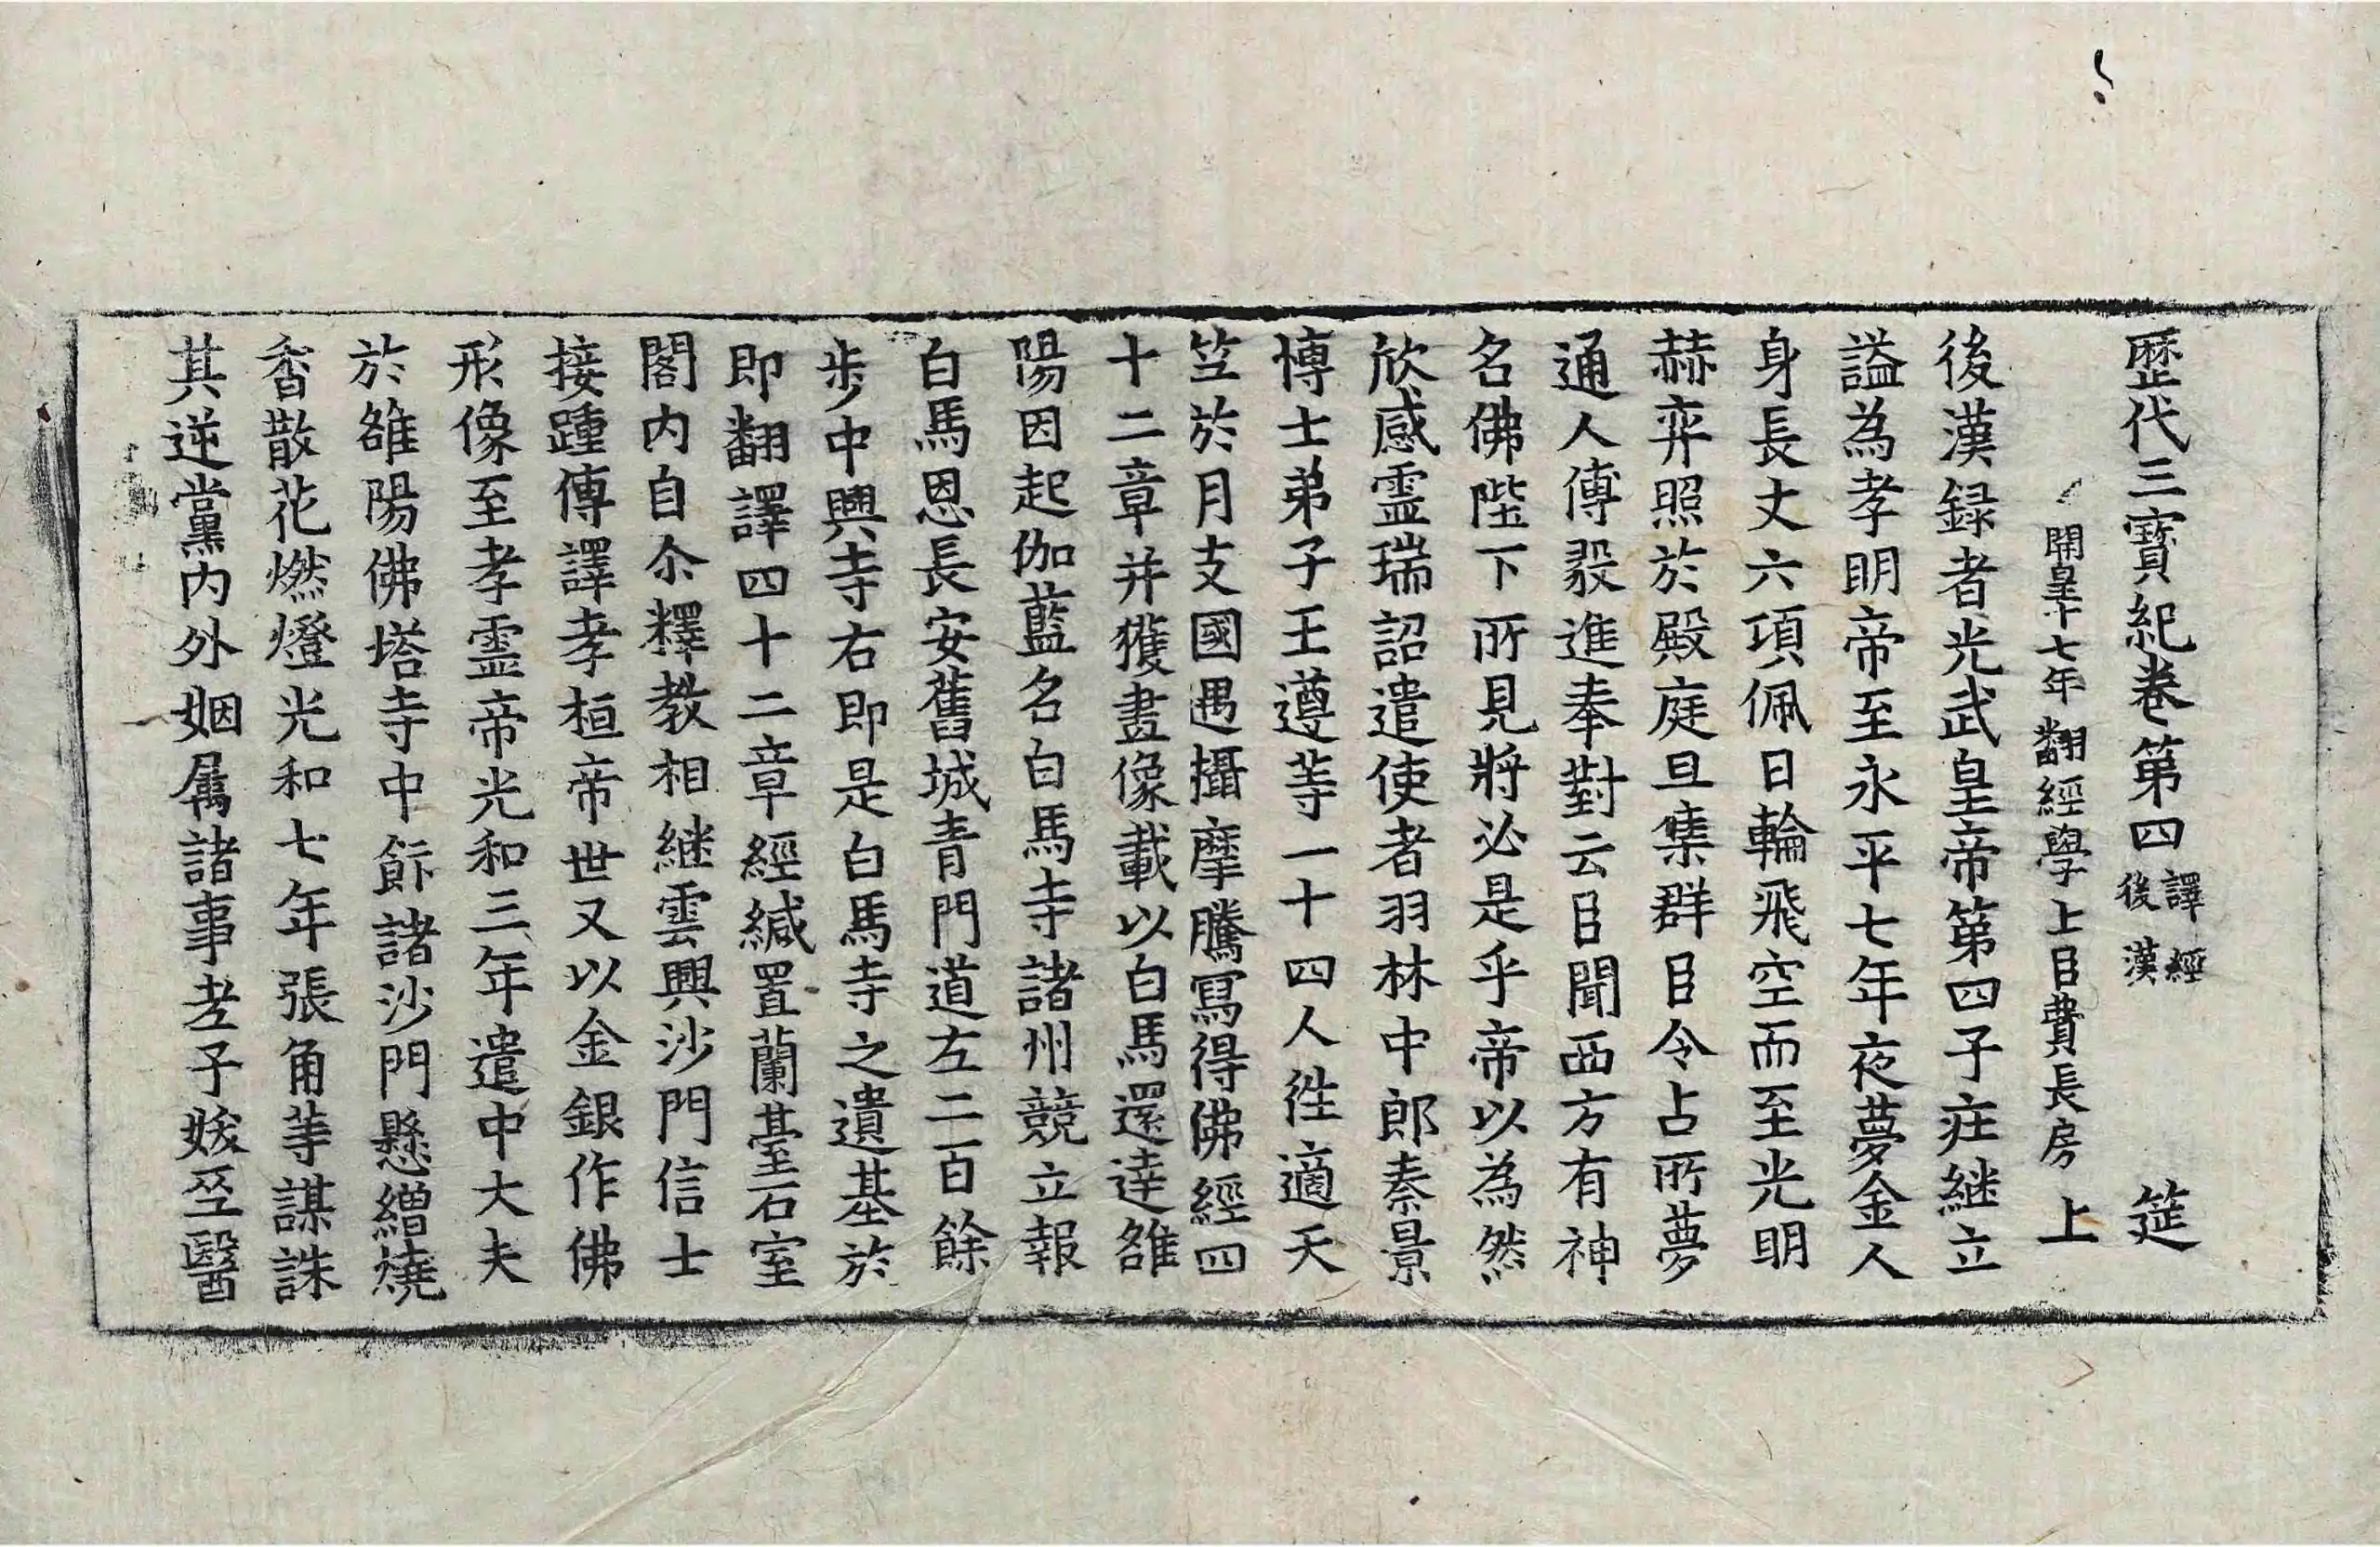 歷代三寶紀卷第四 譯經後漢 筵
開皇十七年翻經學上臣費長房上
後漢録者光武皇帝第四子莊継立
謚為孝明帝至永平七年夜夢金人
身長丈六項佩日輪飛空而至光明
赫弈照於殿庭旦集群臣令占所夢
通人傅毅進奉對云臣聞西方有神
名佛陛下所見將必是乎帝以為然
欣感霊瑞詔遣使者羽林中郎秦景
博士弟子王遵等一十四人往適天
竺於月支國遇攝摩騰寫得佛經四
十二章并獲畫像載以白馬還達雒
陽因起伽藍名白馬寺諸州競立報
白馬恩長安舊城青門道左二百餘
步中興寺右即是白馬寺之遺基於
即翻譯四十二章經緘置蘭臺石室
閣内自尒釋教相継雲興沙門信士
接踵傳譯孝桓帝世又以金銀作佛
形像至孝霊帝光和三年遣中大夫
於雒陽佛塔寺中飰諸沙門懸繒燒
香散花燃燈光和七年張角等謀誅
其逆黨内外姻属諸事老子妖巫醫